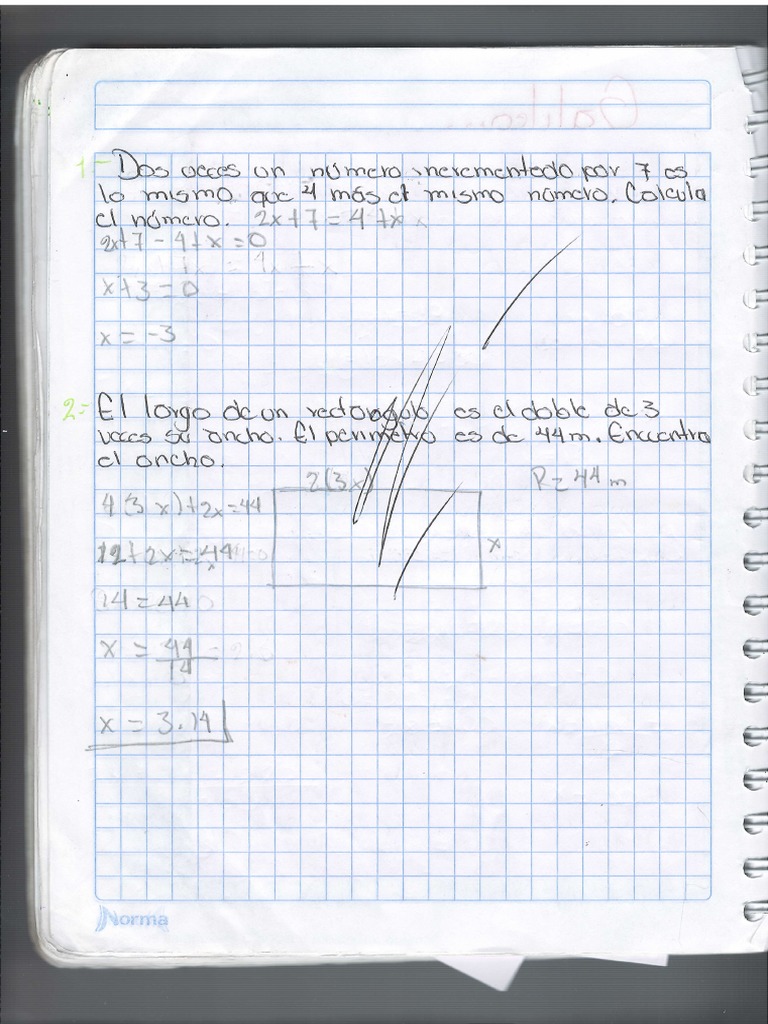 1- Dos veces un número incrementado por 7 es
lo mismo que 4 más el mismo número. Calcula
el número. 2x+7=4+x
2x+7-4+x=0
x+3=0
x=-3
2- El largo de un rectangulo es el doble de 3
veces su ancho. El perimetro es de 44m. Encuentra
el ancho.
2(3x) P=44m
4(3x)+2x=44
x
12+2x=44
14=44
x = 44/14
x = 3.14
Norma